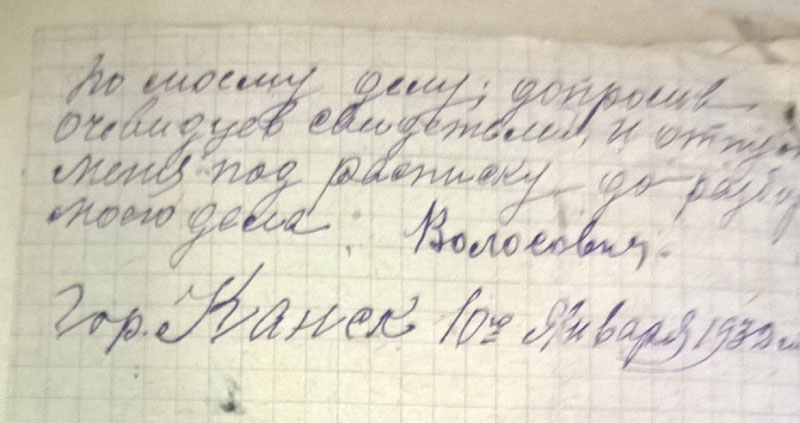 по моему делу; допросив
очевидцев свидетелей, и отпу
меня под расписку до разбо
моего дела. Волосович.
Гор. Канск 10го Января 193